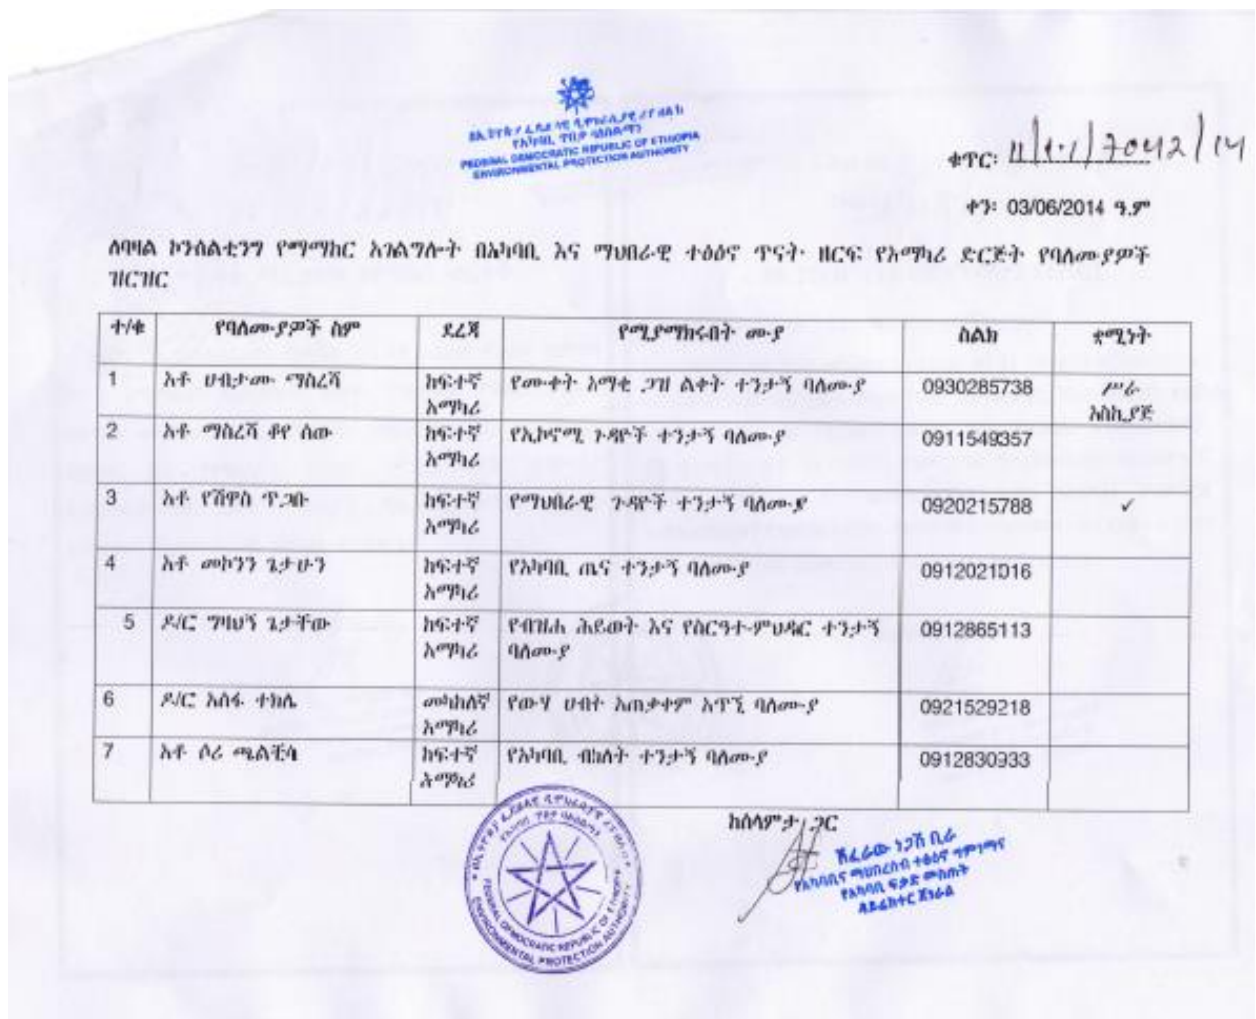 FEDERAL DEMOCRATIC REPUBLIC OF ETHIOPIA
ENVIRONMENTAL PROTECTION AUTHORITY
ቁጥር:
ቀን፡ 03/06/2014 ዓ.ም
ለባዛል ኮንሰልቲንግ የማማከር አገልግሎት በአካባቢ እና ማህበራዊ ተፅዕኖ ጥናት ዘርፍ የአማካሪ ድርጅት የባለሙያዎች
ዝርዝር
ተ/ቁ የባለሙያዎች ስም ደረጃ የሚያማክሩበት ሙያ ስልክ ቋሚነት
1 አቶ ሀብታሙ ማስረሻ ከፍተኛ አማካሪ የሙቀት አማቂ ጋዝ ልቀት ተንታኝ ባለሙያ 0930285738 ሥራ አስኪያጅ
2 አቶ ማስረሻ ቆየ ሰው ከፍተኛ አማካሪ የኢኮኖሚ ጉዳዮች ተንታኝ ባለሙያ 0911549357
3 አቶ የሽዋስ ጥጋቡ ከፍተኛ አማካሪ የማህበራዊ ጉዳዮች ተንታኝ ባለሙያ 0920215788 ✓
4 አቶ መኮንን ጌታሁን ከፍተኛ አማካሪ የአካባቢ ጤና ተንታኝ ባለሙያ 0912021016
5 ዶ/ር ግዛህኝ ጌታቸው ከፍተኛ አማካሪ የብዝሐ ሕይወት እና የስርዓተ-ምህዳር ተንታኝ ባለሙያ 0912865113
6 ዶ/ር አሰፋ ተክሌ መካከለኛ አማካሪ የውሃ ሀብት አጠቃቀም አጥኚ ባለሙያ 0921529218
7 አቶ ሶሪ ጫልቺሳ ከፍተኛ አማካሪ የአካባቢ ብክለት ተንታኝ ባለሙያ 0912830933
ከሰላምታ ጋር
ሽፈራው ነጋሽ ቢራ
የአካባቢና ማህበረሰብ ተፅዕኖ ግምገማና
የአካባቢ ፍቃድ መስጠት
ዳይሬክተር ጀነራል
FEDERAL DEMOCRATIC REPUBLIC OF ETHIOPIA
ENVIRONMENTAL PROTECTION AUTHORITY